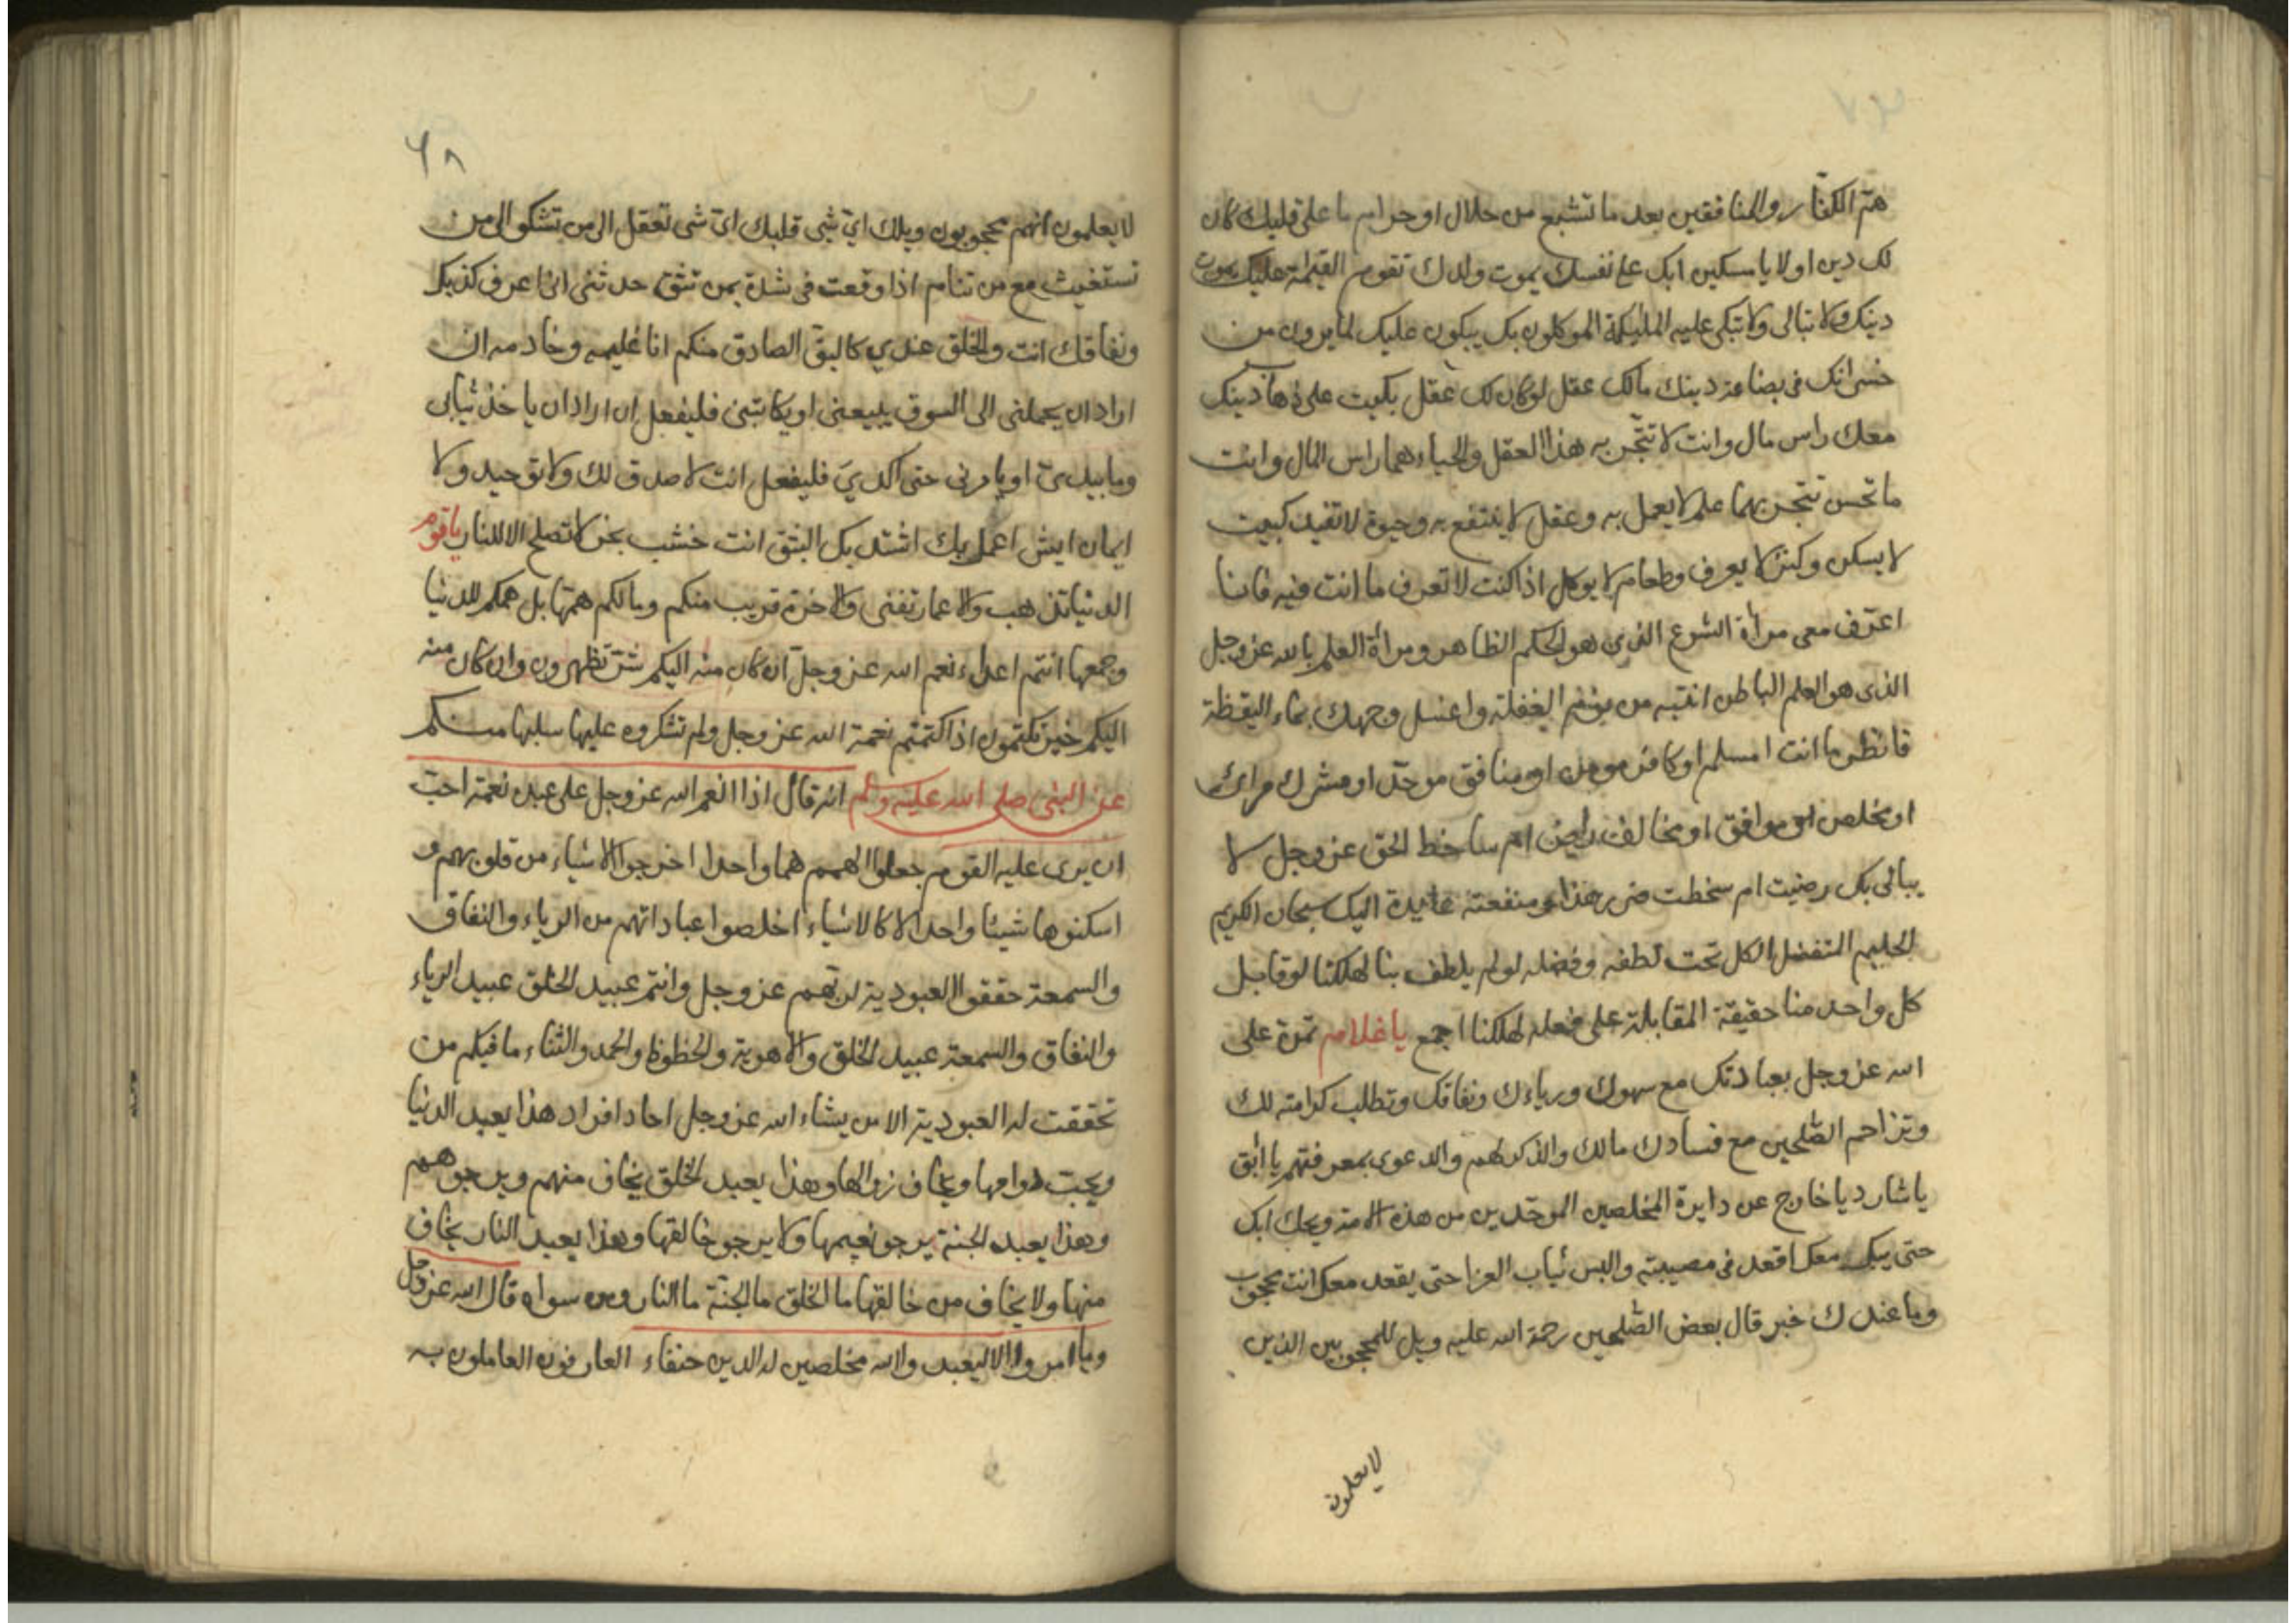 هم الكفار والمنافقين بعد ما تشبع من حلال او حرام ما على قلبك كان
لك دين اولا يا مسكين ابك على نفسك يموت ولدك تقوم القيامة عليك يموت
دينك ولا تبالى ولا تبكى عليه المليكة الموكلون بك يبكون عليك لما يرون من
خسرانك فى بضاعة دينك مالك عقل لو كان لك عقل بكيت على ذهاب دينك
معك راس مال وانت لا تتجر به هذا العقل والحياء هما راس المال وانت
ما تحسن تتجر بهما علم لا يعمل به وعقل لا ينتفع به وحيوة لا تفيد كبيت
لا يسكن وكنز لا يعرف وطعام لا يوكل اذا كنت لا تعرف ما انت فيه فانا
اعترف معى مرأة الشرع الذى هو الحكم الظاهر ومرأة العلم بالله عز وجل
الذى هو العلم الباطن انتبه من نومة الغفلة واغسل وجهك بماء اليقظة
فانظر ما انت امسلم او كافر مومن او منافق موحد او مشرك مرائ
او مخلص او موافق او مخالف راض ام ساخط الحق عز وجل لا
يبالى بك رضيت ام سخطت ضر هذا ومنفعته عايدة اليك سبحان الكريم
الحليم المتفضل الكل تحت لطفه وفضله لو لم يلطف بنا لهلكنا لو قابل
كل واحد منا حقيقة المقابلة على فعله لهلكنا اجمع يا غلام تمرة على
الله عز وجل بعبادتك مع سهوك ورياءك ونفاقك وتطلب كرامته لك
وتزاحم الصلحين مع فسادك مالك والذكر لهم والدعوى بمعرفتهم يا ابق
يا شارد يا خارج عن دايرة المخلصين الموحدين من هذه الامة ويحك ابك
حتى يبكى معك اقعد فى مصيبته والبس ثياب العزا حتى يقعد معك انت محجوب
وما عندك خبر قال بعض الصلحين رحمة الله عليه ويل للمحجوبين الذين
لا يعلمون
٦٨
لا يعلمون انهم محجوبون ويلك اى شى قلبك اى شى تعقل الى من تشكو الى من
تستغيث مع من تنام اذا وقعت فى شدة بمن تثق حدثنى انى اعرف كذبك
ونفاقك انت والخلق عندى كالبق الصادق منكم انا غليمه وخادمه ان
اراد ان يحملنى الى السوق يبيعنى او يكاتبنى فليفعل ان اراد ان ياخذ ثيابى
وما بيدى او يامرنى حتى اكدى فليفعل انت لا صدق لك ولا توحيد ولا
ايمان ايش اعمل بك اشتد بك البثق انت خشب نخر لا تصلح الا للنار يا قوم
الدنيا تذهب والاعمار تفنى والاخرة قريب منكم وما لكم همتها بل همكم للدنيا
وجمعها انتم اعداء نعم الله عز وجل ان كان منه اليكم شر تظهرون وان كان منه
اليكم خير تكتمون اذا كتمتم نعمة الله عز وجل ولم تشكروه عليها سلبها منكم
عن النبى صلى الله عليه وسلم انه قال اذا انعم الله عز وجل على عبده نعمة احب
ان يرى عليه القوم جعلوا الهمم هما واحدا اخرجوا الاشياء من قلوبهم و
اسكنوها شيئا واحدا لا كالاشياء اخلصوا عباداتهم من الرياء والنفاق
والسمعة حققوا العبودية لربهم عز وجل وانتم عبيد الخلق عبيد الرياء
والنفاق والسمعة عبيد الخلق والاهوية والحظوظ والحمد والثناء ما فيكم من
تحققت له العبودية الا من يشاء الله عز وجل احاد افراد هذا يعبد الدنيا
ويحب دوامها ويخاف زوالها وهذا يعبد الخلق يخاف منهم ويرجوهم
وهذا يعبد الجنة يرجو نعيمها ولا يرجو خالقها وهذا يعبد النار يخاف
منها ولا يخاف من خالقها ما الخلق ما الجنة ما النار ومن سواه قال الله عز وجل
وما امروا الا ليعبدوا الله مخلصين له الدين حنفاء العارفون العاملون به